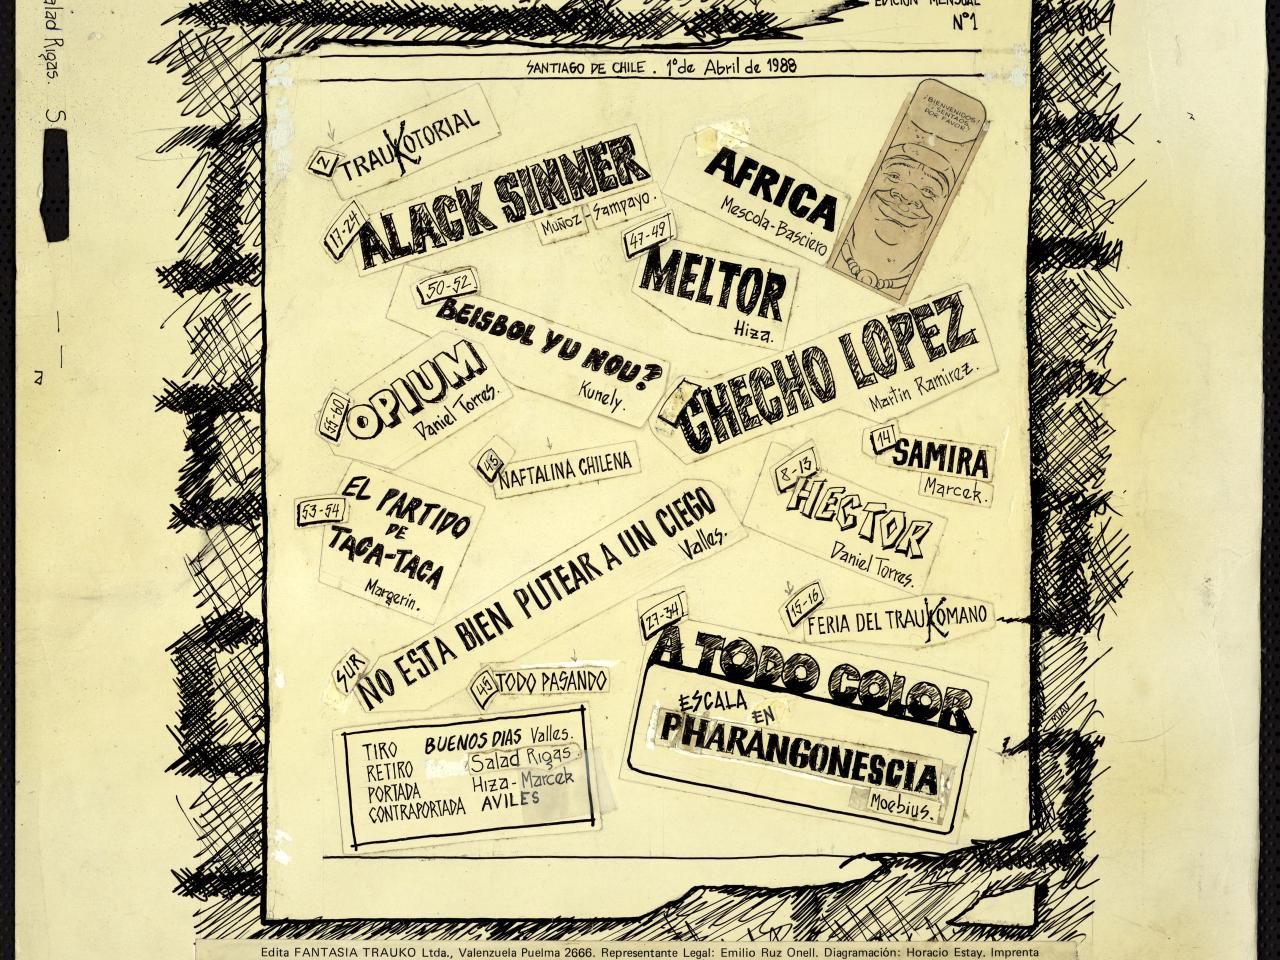 EDICION MENSUAL
N°1
SANTIAGO DE CHILE . 1° de Abril de 1988
¡BIENVENIDOS!
¡SENTAOS,
POR FAVOR!
2 TRAUKOTORIAL
17-24 ALACK SINNER
Muñoz-Sampayo.
AFRICA
Mescola-Basciero
47-49
MELTOR
Hiza.
50-52
BEISBOL YU NOU?
Kunely.
CHECHO LOPEZ
Martin Ramirez.
55-60 OPIUM
Daniel Torres.
14 SAMIRA
Marcek.
45 NAFTALINA CHILENA
8-13
HECTOR
Daniel Torres.
53-54
EL PARTIDO
DE
TACA-TACA
Margerin.
SUR NO ESTA BIEN PUTEAR A UN CIEGO
Valles.
15-16
FERIA DEL TRAUKOMANO
27-34
A TODO COLOR
ESCALA
EN
PHARANGONESCIA
Moebius.
45 TODO PASANDO
TIRO BUENOS DIAS Valles.
RETIRO Salad Rigas
PORTADA Hiza-Marcek
CONTRAPORTADA AVILES
Edita FANTASIA TRAUKO Ltda., Valenzuela Puelma 2666. Representante Legal: Emilio Ruz Onell. Diagramación: Horacio Estay. Imprenta
alad Rigas. S